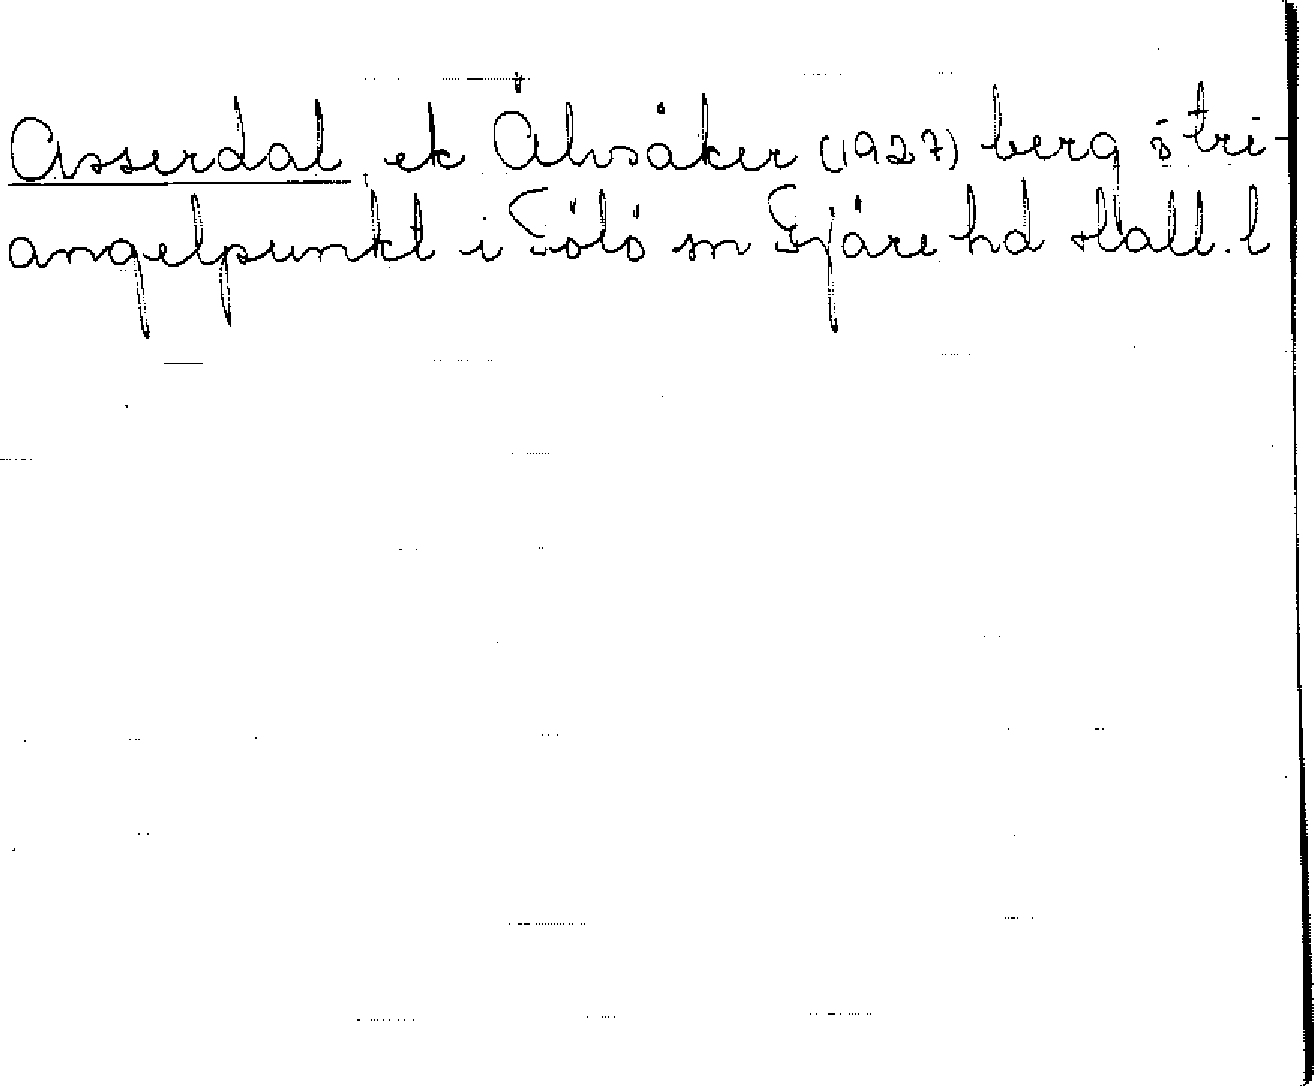 Asserdal, ek Älvsåker (1927) berg o tri-
angelpunkt i Tölö sn Fjäre hd Hall. l